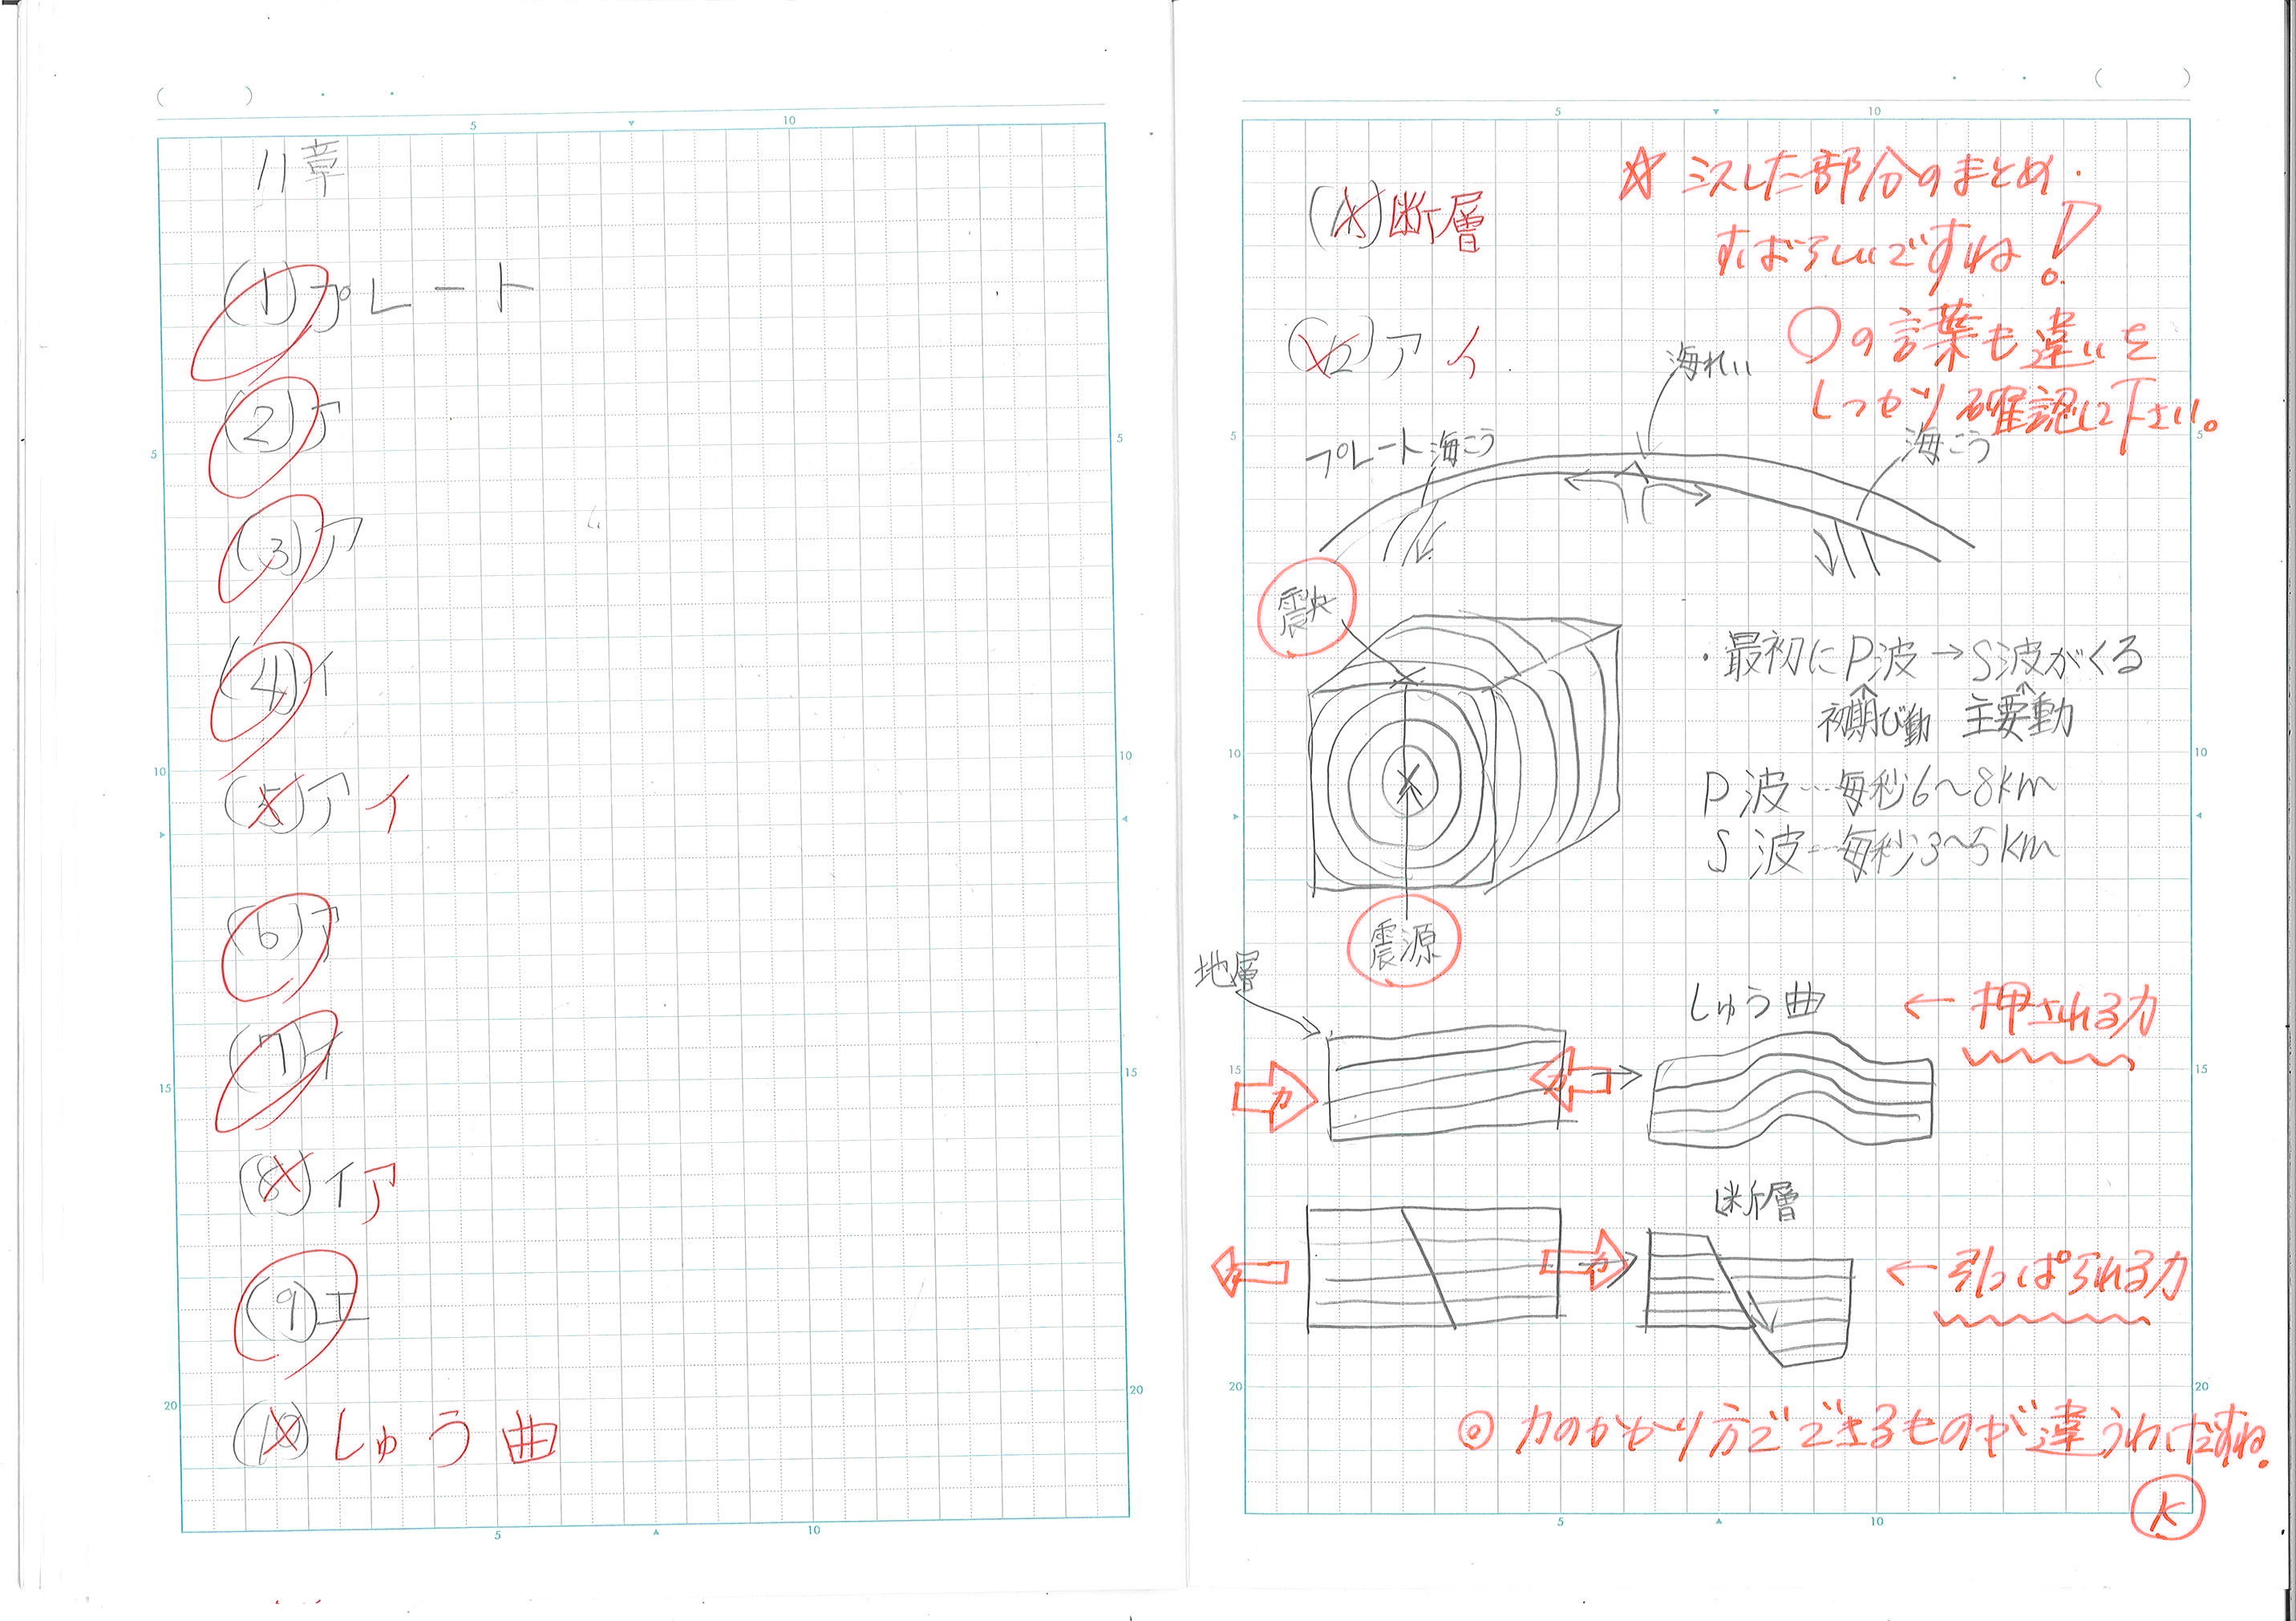 11章
(1)プレート
(2)ア
(3)ア
(4)イ
(5)ア イ
(6)ア
(7)イ
(8)イ ア
(9)エ
(10)しゅう曲
(11)断層
☆ ミスした部分のまとめ.
すばらしいですね!
(12)ア イ
〇の言葉も違いを
しっかり確認して下さい。
海れい
プレート 海こう
海こう
震央
・最初にP波→S波がくる
初期び動 主要動
P波…毎秒6～8km
S波…毎秒3～5km
震源
地層
しゅう曲 ← 押される力
力 力
断層
力 力
← 引っぱられる力
◎ 力のかかり方でできるものが違うわけですね.
K
5 10
5 10
5 5
10 10
15 15
20 20
5 10
5 10
5 5
10 10
15 15
20 20